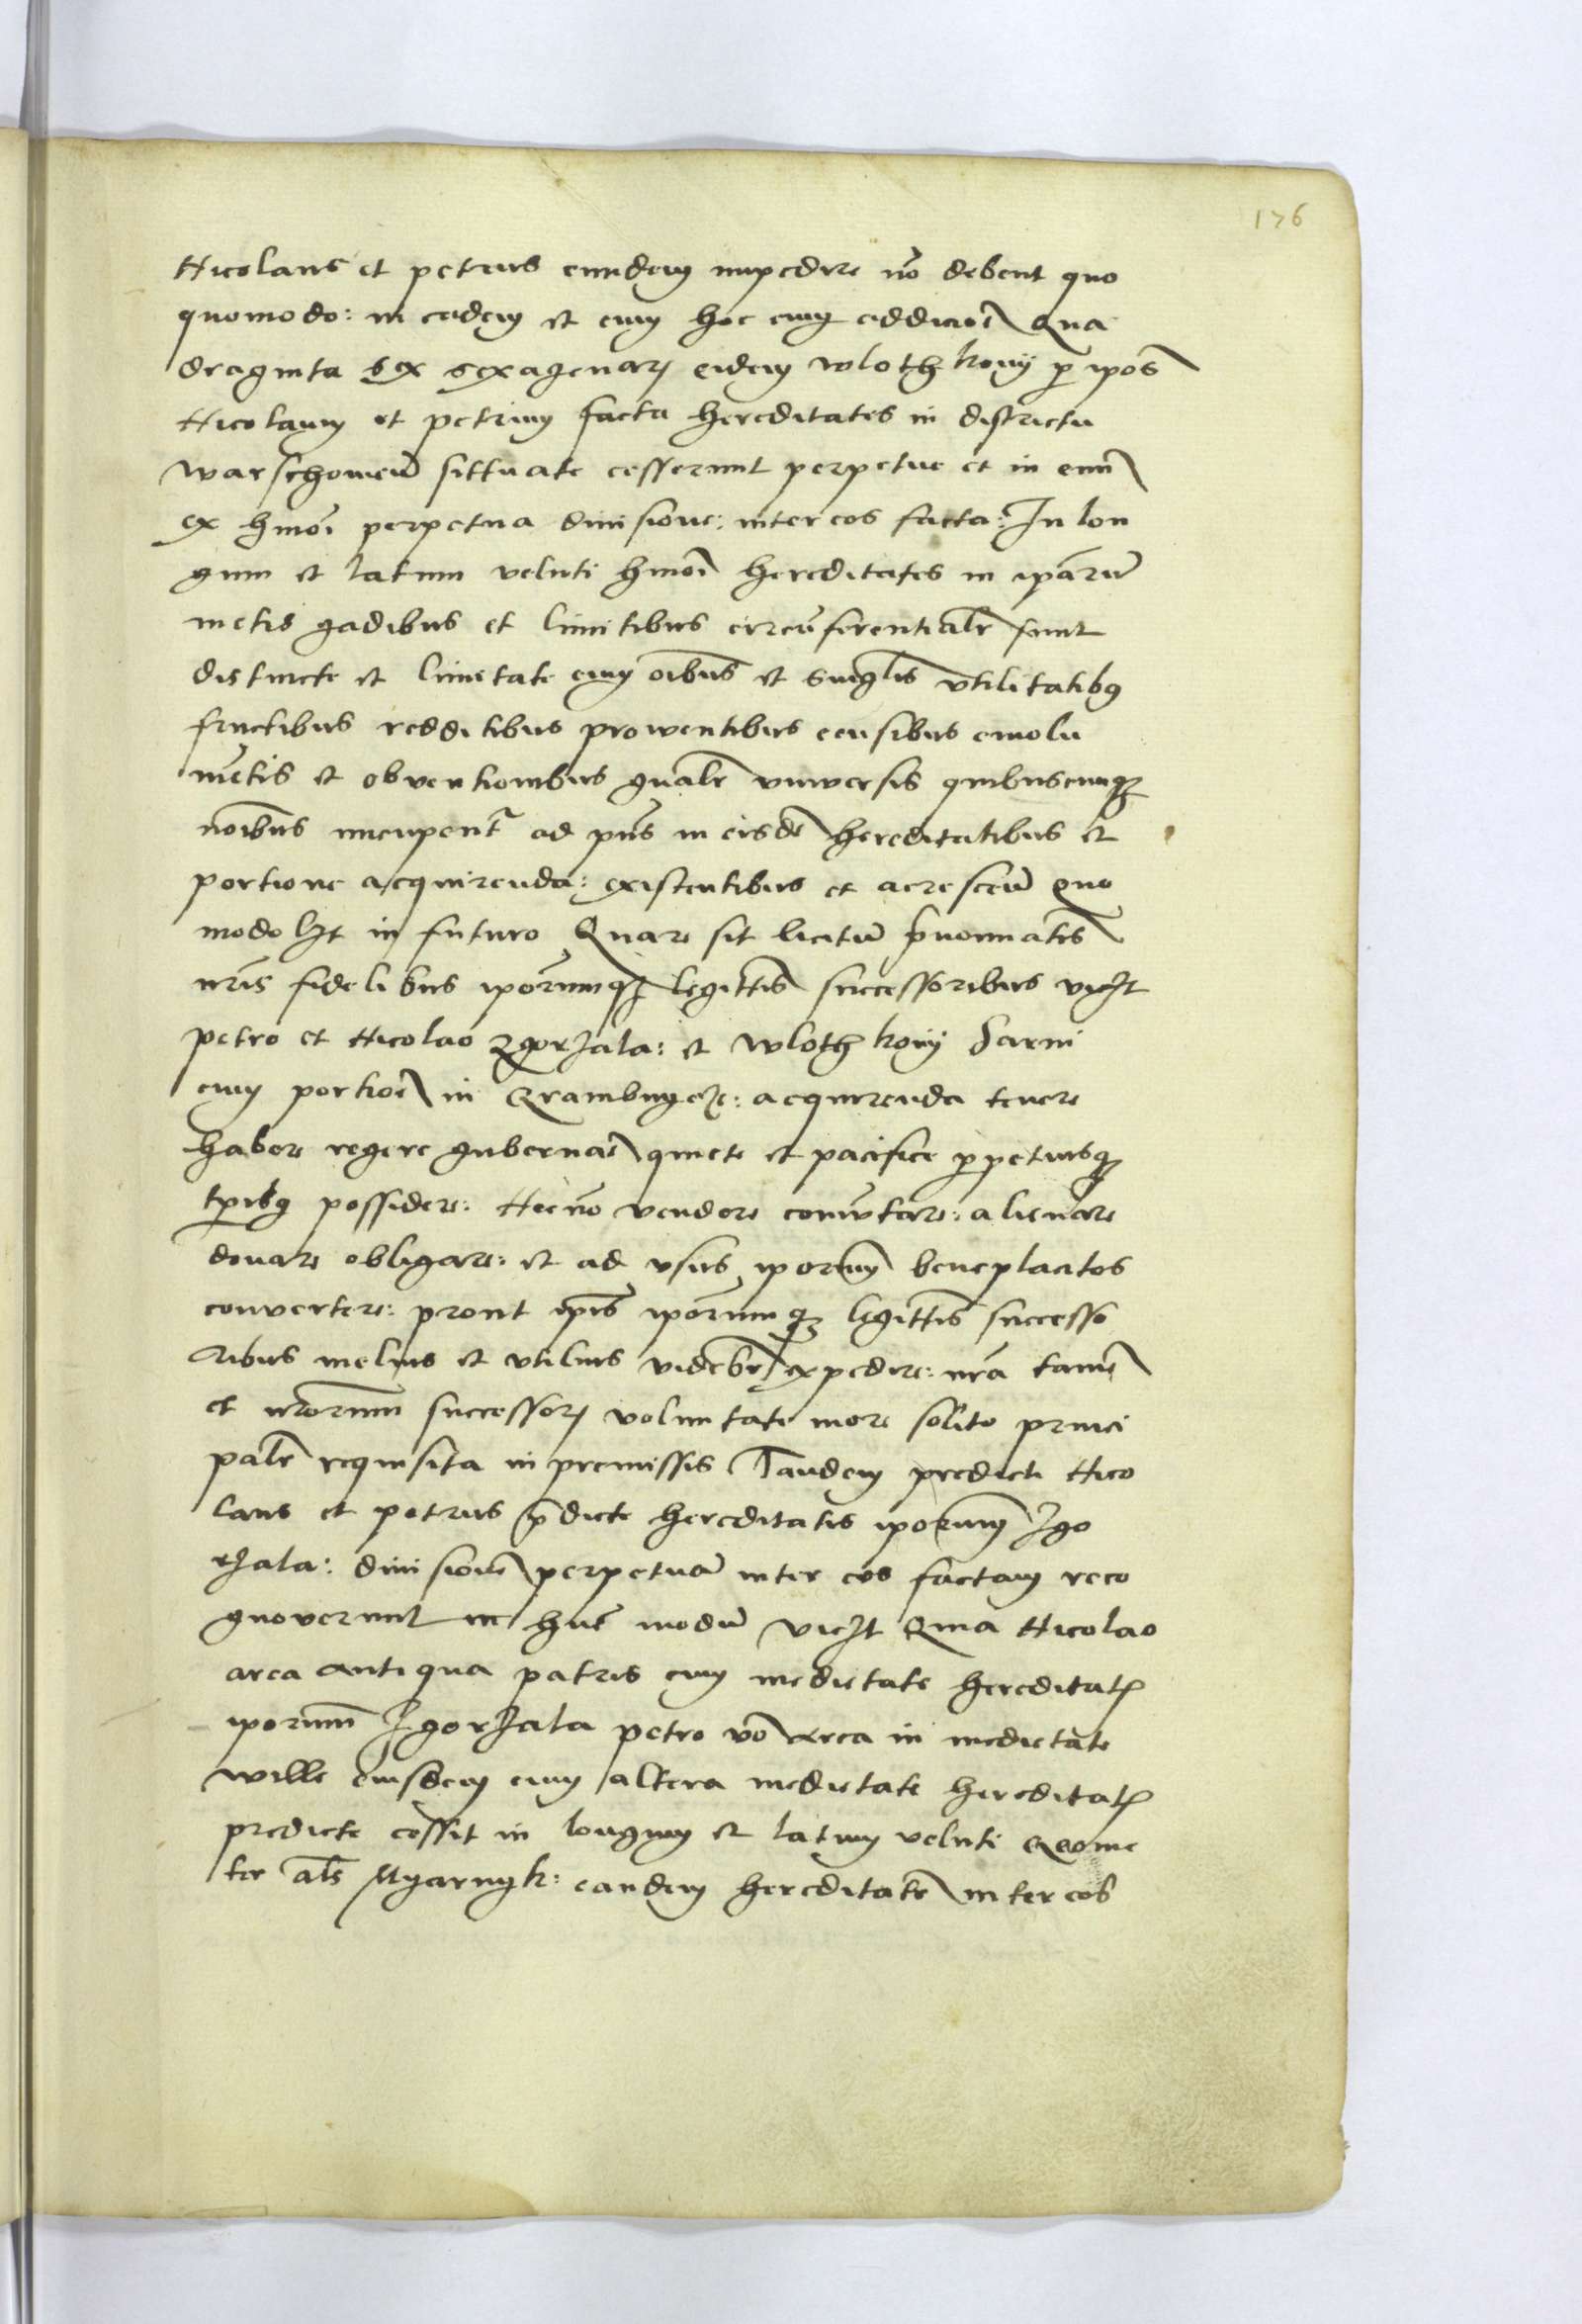 176
Nicolaus et petrus eundem impedire nō debent quo
quomodo: in eadem et cum hoc cum addicioē Qua
draginta sex sexagenarꝝ eidem wlothkony ꝑ ip̄os
Nicolaum et petrum facta hereditates in districtu
warschovien̄ sittuate cesserunt perpetue et in eum̄
ex hm̄oi perpetua divisione: inter eos facta: In lon
gum et latum veluti hm̄oi hereditates in ip̄arū
metis gadibus et limitibus circūferentialr̄ sunt
distincte et limitate cum oībus et singl̄is vtilitatibꝯ
fructibus redditibus proventibus censibus emolu
mētis et obventionibus gn̄alr̄ vniversis quibuscumqꝫ
noībus nuncupent̄ᷣ ad pn̄s in eisdē hereditatibus et
portione acquirenda: existentibus et acrescen̄ quo
modolꝫt in futuro Quare sit licitū p̄nominatis
nr̄is fidelibus ip̄orumqꝫ legittīs successoribus vicꝫt
petro et Nicolao Zgorzala: et wlothkony Sarni
cum portioē in Grambnycze: acquirenda tenere
habere regere gubernar̄ quiete et pacifice ꝑpetuisqꝫ
tꝑibꝯ possidere: Necnō vendere comūtare: alienare
donare obligare: et ad vsus ip̄orum beneplacitos
convertere: prout ip̄is ip̄orumqꝫ legittīs successo
ribus melius et vtilius videbr̄ expedire: nr̄a tamē
et nr̄orum successorꝝ voluntate more solito princi
palr̄ requisita in premissis Tandem predicti Nico
laus et petrus p̄dicte hereditatis ip̄orum Zgo
rzala: divisionē perpetuā inter eos factam reco
gnoverunt in hūc modū vicꝫt Quia Nicolao
area antiqua patris cum medietate hereditatꝭ
ip̄orum Zgorzala petro vō area in medietate
wille eiusdem cum altera medietate hereditatꝭ
predicte cessit in longum et latum veluti Geome
ter al̄s Myarnyk: eandem hereditatē inter eos